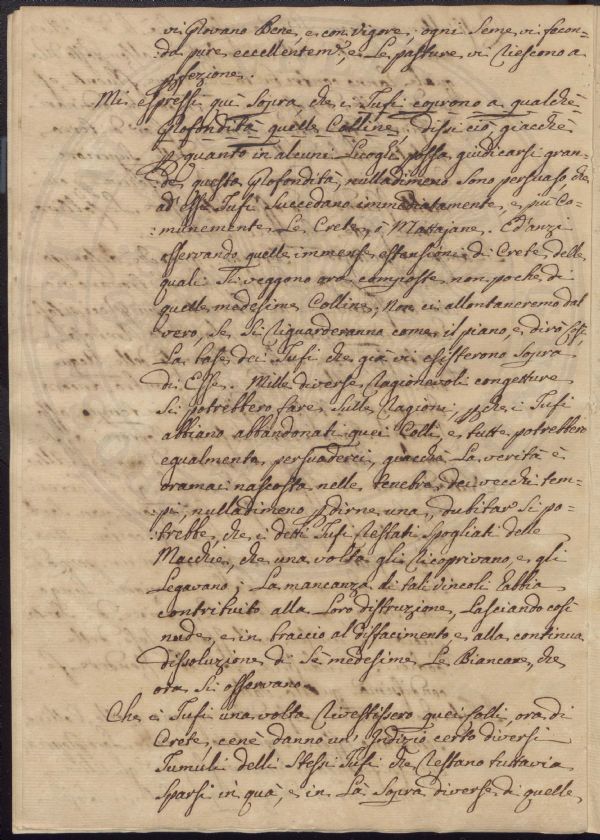 vi Giovano Bene, e con vigore; ogni Seme vi fecon=
:da pure eccellentemte, e Le pasture vi riescono a
pfezione.
Mi espressi quì Sopra, che i Tufi coprono a qualche
Profondità quelle Colline: dissi ciò, giacchè
p quanto in alcuni Luoghi possa giudicarsi gran=
:de questa Profondità, nulladimeno Sono persuaso, che
ad Essi Tufi Succedano immediatamente, e più Co=
:munemente Le Crete, ò Mattajone. Ed anzi
osservando quelle immense estensioni di Crete, delle
quali Si veggono ora composte non poche di
quelle medesime Colline, Non ci allontaneremo dal
vero, Se Si riguarderanno come il piano, e dirò così,
La base dei Tufi che già vi esisterono Sopra
di Esse. Mille diverse ragionevoli congetture
Si potrebbero fare Sulle ragioni, pche i Tufi
abbiano abbandonati quei Colli, e tutte potrebbero
egualmente persuaderci, giacchè La verità è
oramai nascosta nelle tenebre dei vecchi tem=
:pi: nulladimeno p dirne una, dubitar Si po=
:trebbe, che i detti Tufi restati Spogliati delle
Macchie, che una volta gli ricoprivano, e gli
Legavano; La mancanza di tali vincoli abbia
contribuito alla Loro distruzione, Lasciando così
nude, e in braccio al disfacimento, e alla continua
dissoluzione di Sè medesime Le Biancane, che
ora Si osservano.
Che i Tufi una volta rivestissero quei colli, ora di
Crete, cene danno un' Indizio certo diversi
Tumuli delli Stessi Tufi che restano tuttavia
Sparsi in quà, e in Là Sopra diverse di quelle